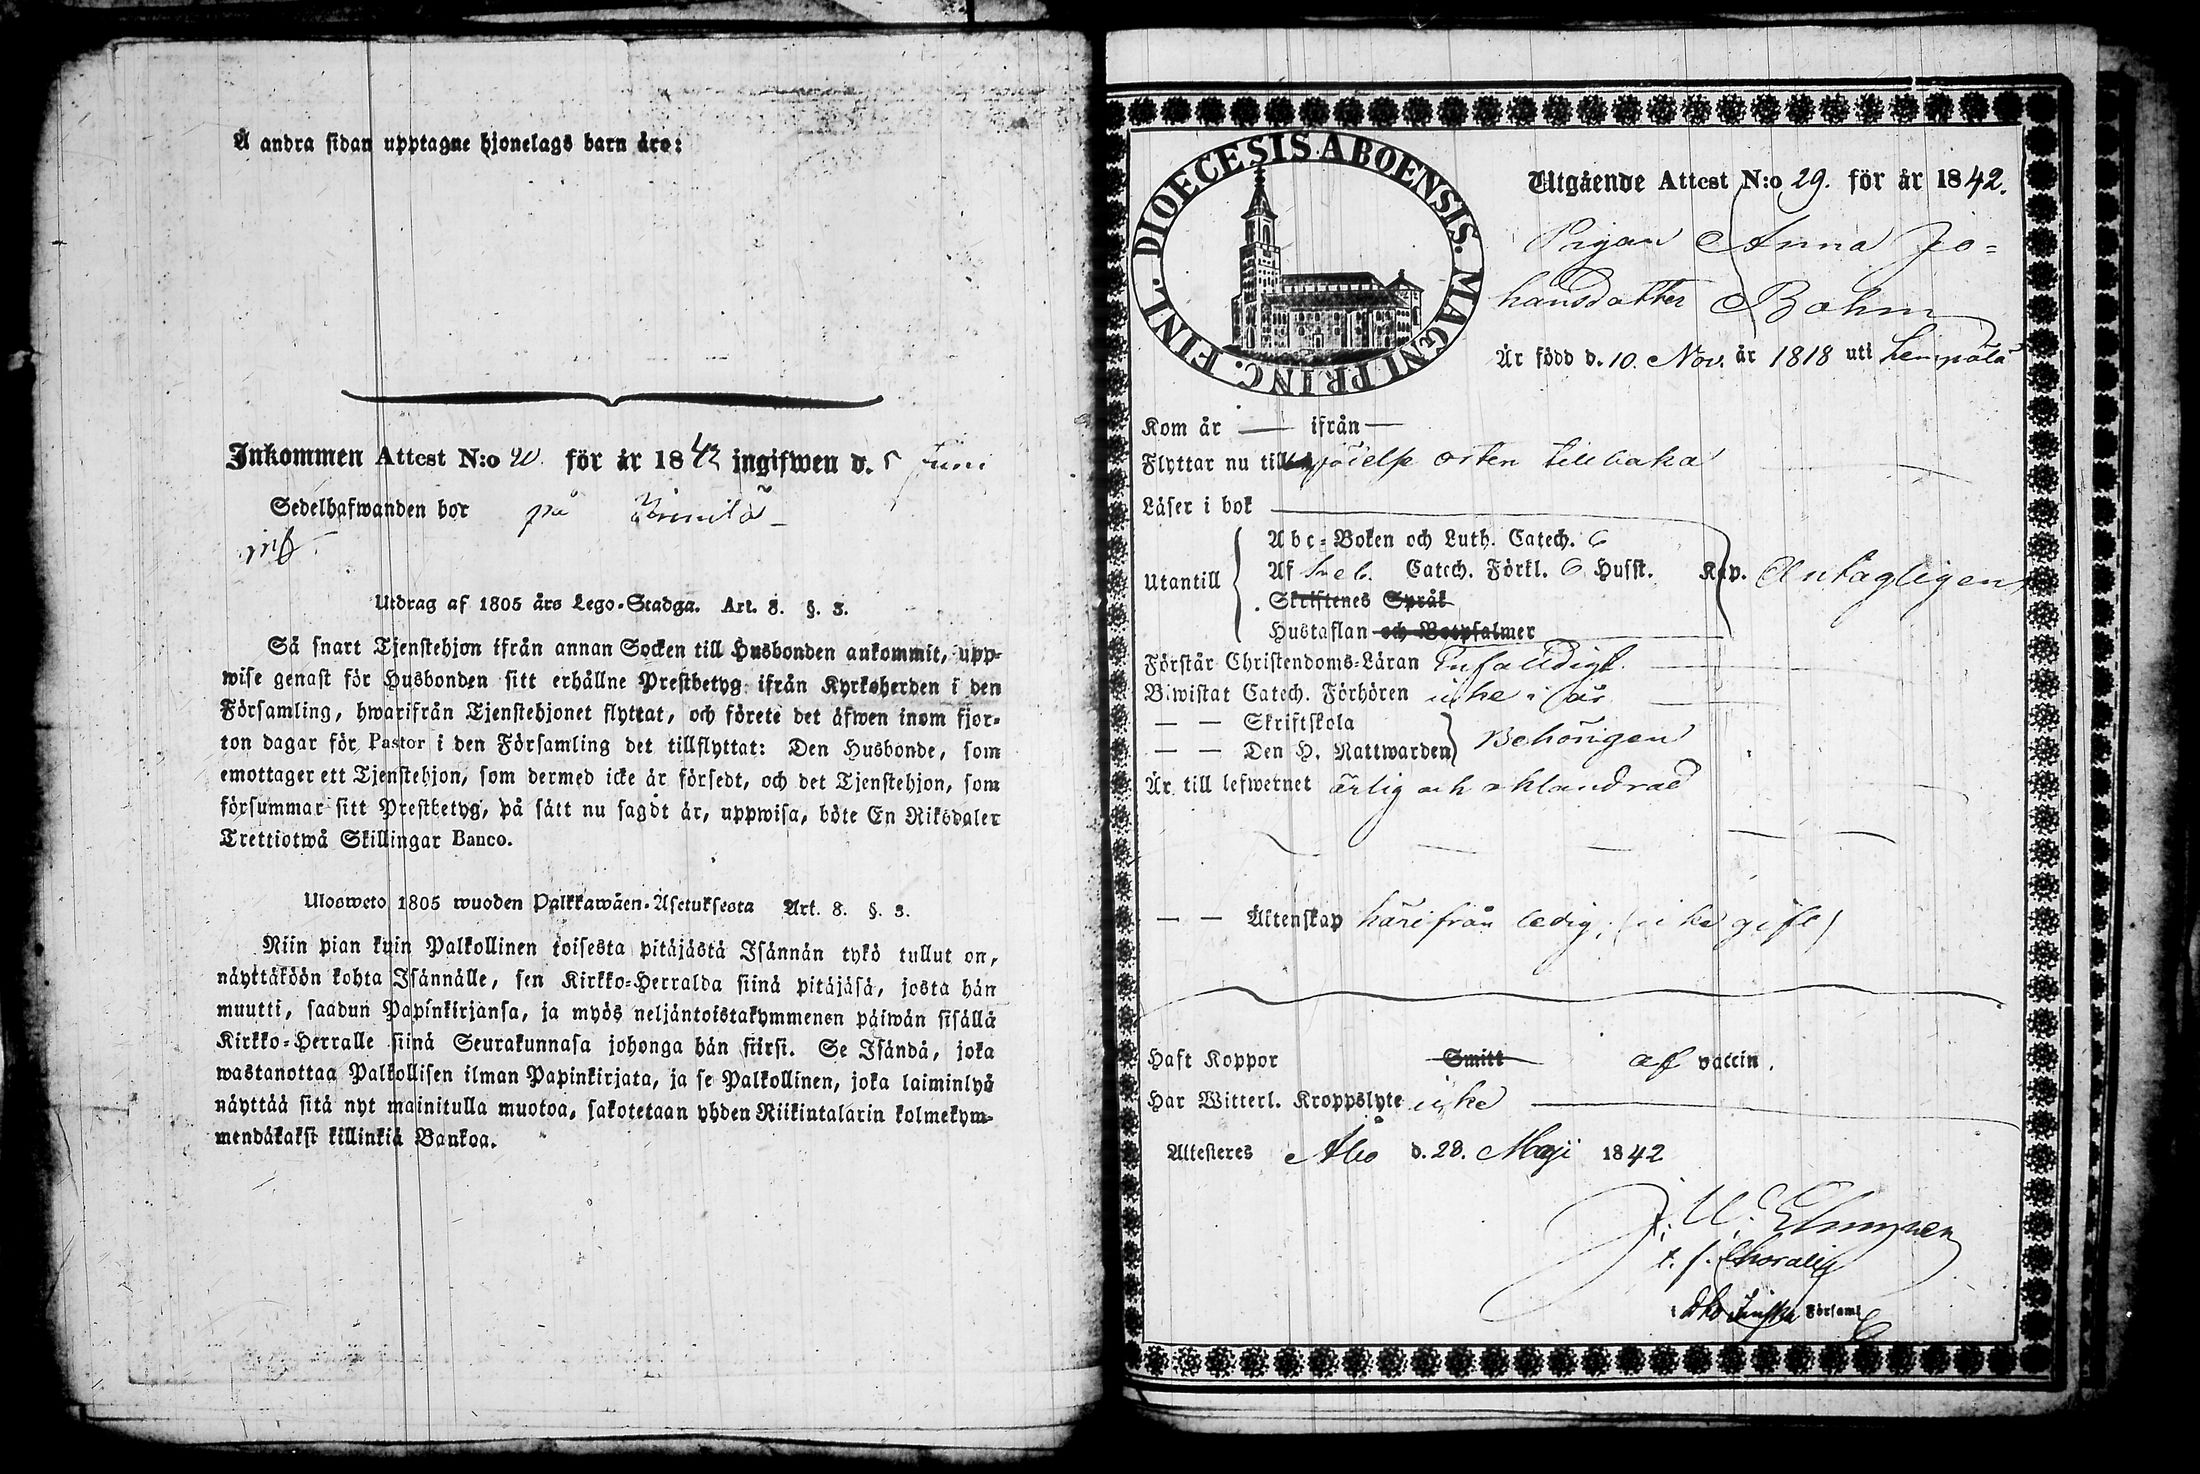 Å andra sidan upptagne hjonelags barn äro:
Inkommen Attest N:o 20. för år 1842 ingifwen d. 5 Juni
Sedelhafwanden bor på
Utdrag af 1805 års Lego-Stadga. Art. 8. §. 3.
Så snart Tjenstehjon ifrån annan Socken till Husbonden ankommit, upp-
wise genast för Husbonden sitt erhållne Prestbetyg ifrån Kyrkoherden i den
Församling, hwarifrån Tjenstehjonet flyttat, och förete det äfwen inom fjor-
ton dagar för Pastor i den Församling det tillflyttat: Den Husbonde, som
emottager ett Tjenstehjon, som dermed icke är försedt, och det Tjenstehjon, som
försummar sitt Prestbetyg, på sätt nu sagdt är, uppwisa, böte En Riksdaler
Trettiotwå Skillingar Banco.
Ulosweto 1805 wuoden Palkkawäen-Asetuksesta Art. 8. §. 3.
Niin pian kuin Palkollinen toisesta pitäjästä Isännän tykö tullut on,
näyttäköön kohta Isännälle, sen Kirkko-Herralda siinä pitäjäsä, josta hän
muutti, saadun Papinkirjansa, ja myös neljäntoistakymmenen päiwän sisällä
Kirkko-Herralle siinä Seurakunnasa johonga hän siirsi. Se Isändä, joka
wastanottaa Palkollisen ilman Papinkirjata, ja se Palkollinen, joka laiminlyö
näyttää sitä nyt mainitulla muotoa, sakotetaan yhden Riikintalarin kolmekym-
mendäkaksi killinkiä Bankoa.
DIOECESIS ABOENSIS. MAGNI PRINC. FINL.
Utgående Attest N:o 29. för år 1842.
Pigan Anna Jo=
hansdotter Bohm
Är född d. 10. Nov. år 1818 uti Lempälä
Kom år — ifrån —
Flyttar nu till orten tillbaka
Läser i bok
Abc-Boken och Luth. Catech. 6
Utantill Af Sveb. Catech. Förkl. 6 Husst. Kap. Antagligen
Skriftenes Språk
Hustaflan och Botpsalmer
Förstår Christendoms-Läran Enfaldigt
Biwistat Catech. Förhören icke i år
— — Skriftskola
— — Den H. Nattwarden Behörigen
Är till lefwernet ärlig och oklandrad
— — Äktenskap härifrån ledig, (icke gift)
Haft Koppor Smitt af vaccin.
Har Witterl. Kroppslyte icke
Attesteres Åbo d. 28. Maji 1842
t. f.
i Åbo Finska Församl.